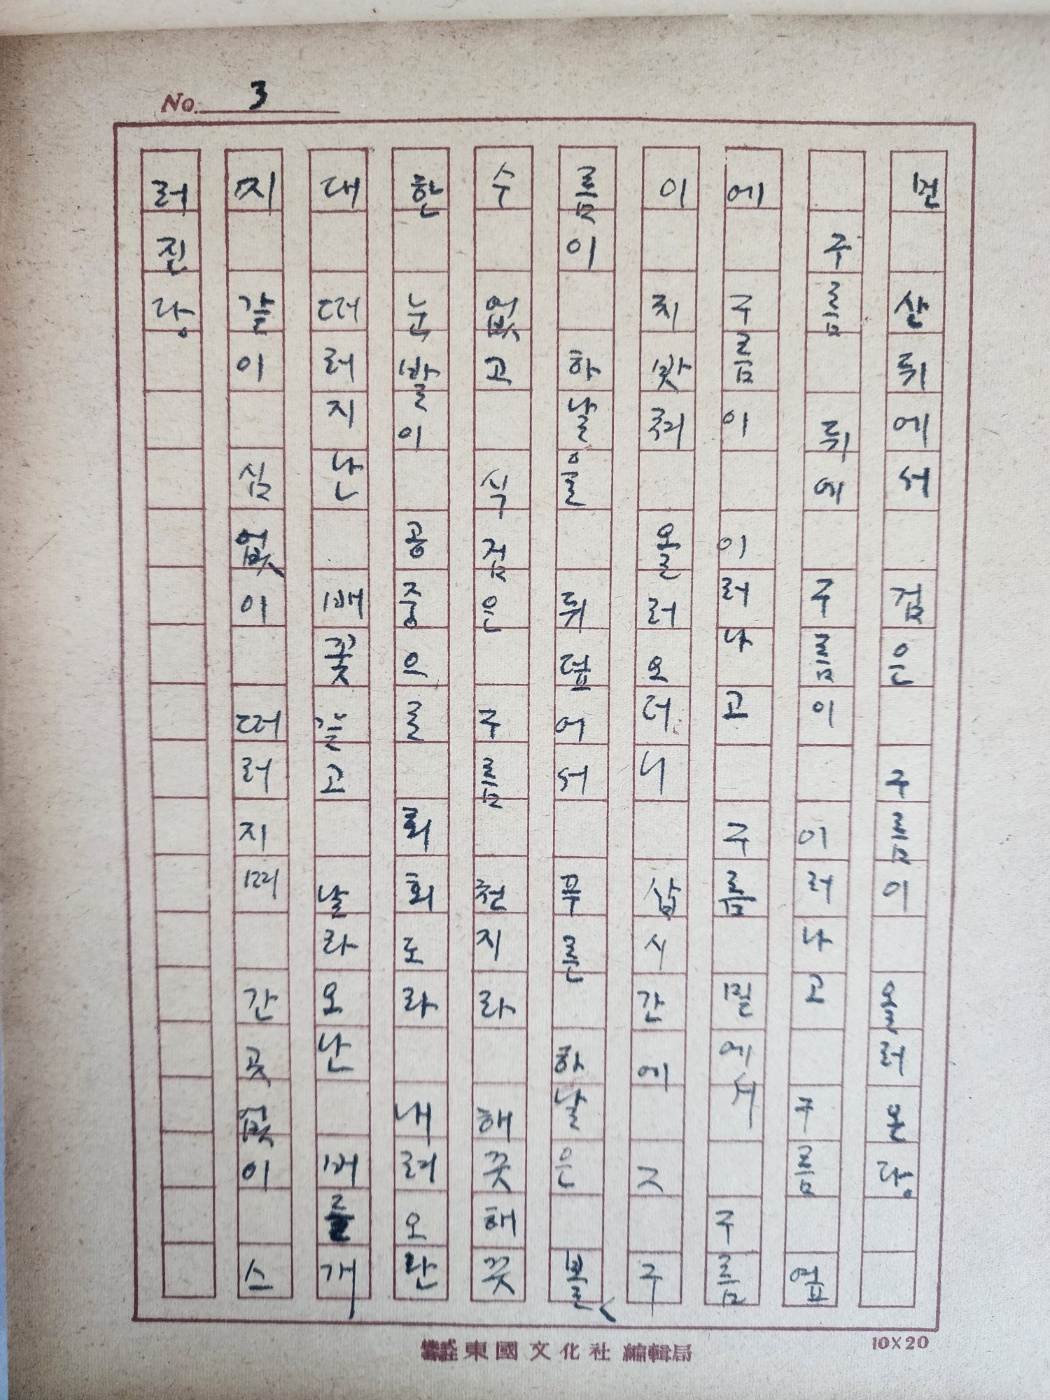 No. 3
먼 산 뒤에서 검은 구름이 올러 온당。
구름 뒤에 구름이 이러나고 구름 옆
에 구름이 이러나고 구름 밑에서 구름
이 치밧춰 올러오더니 삽시간에 그 구
름이 하날을 뒤덮어서 푸른 하날은 볼
수 없고 식검은 구름 천지라 해끗해끗
한 눈발이 공중으로 회회도라 내려오난
대 떠러지난 배꽃 갈고 날라오난 버들개
지 갈이 심없이 떠러지며 간곳없이 스
러진당。
東國文化社 編輯局
10X20